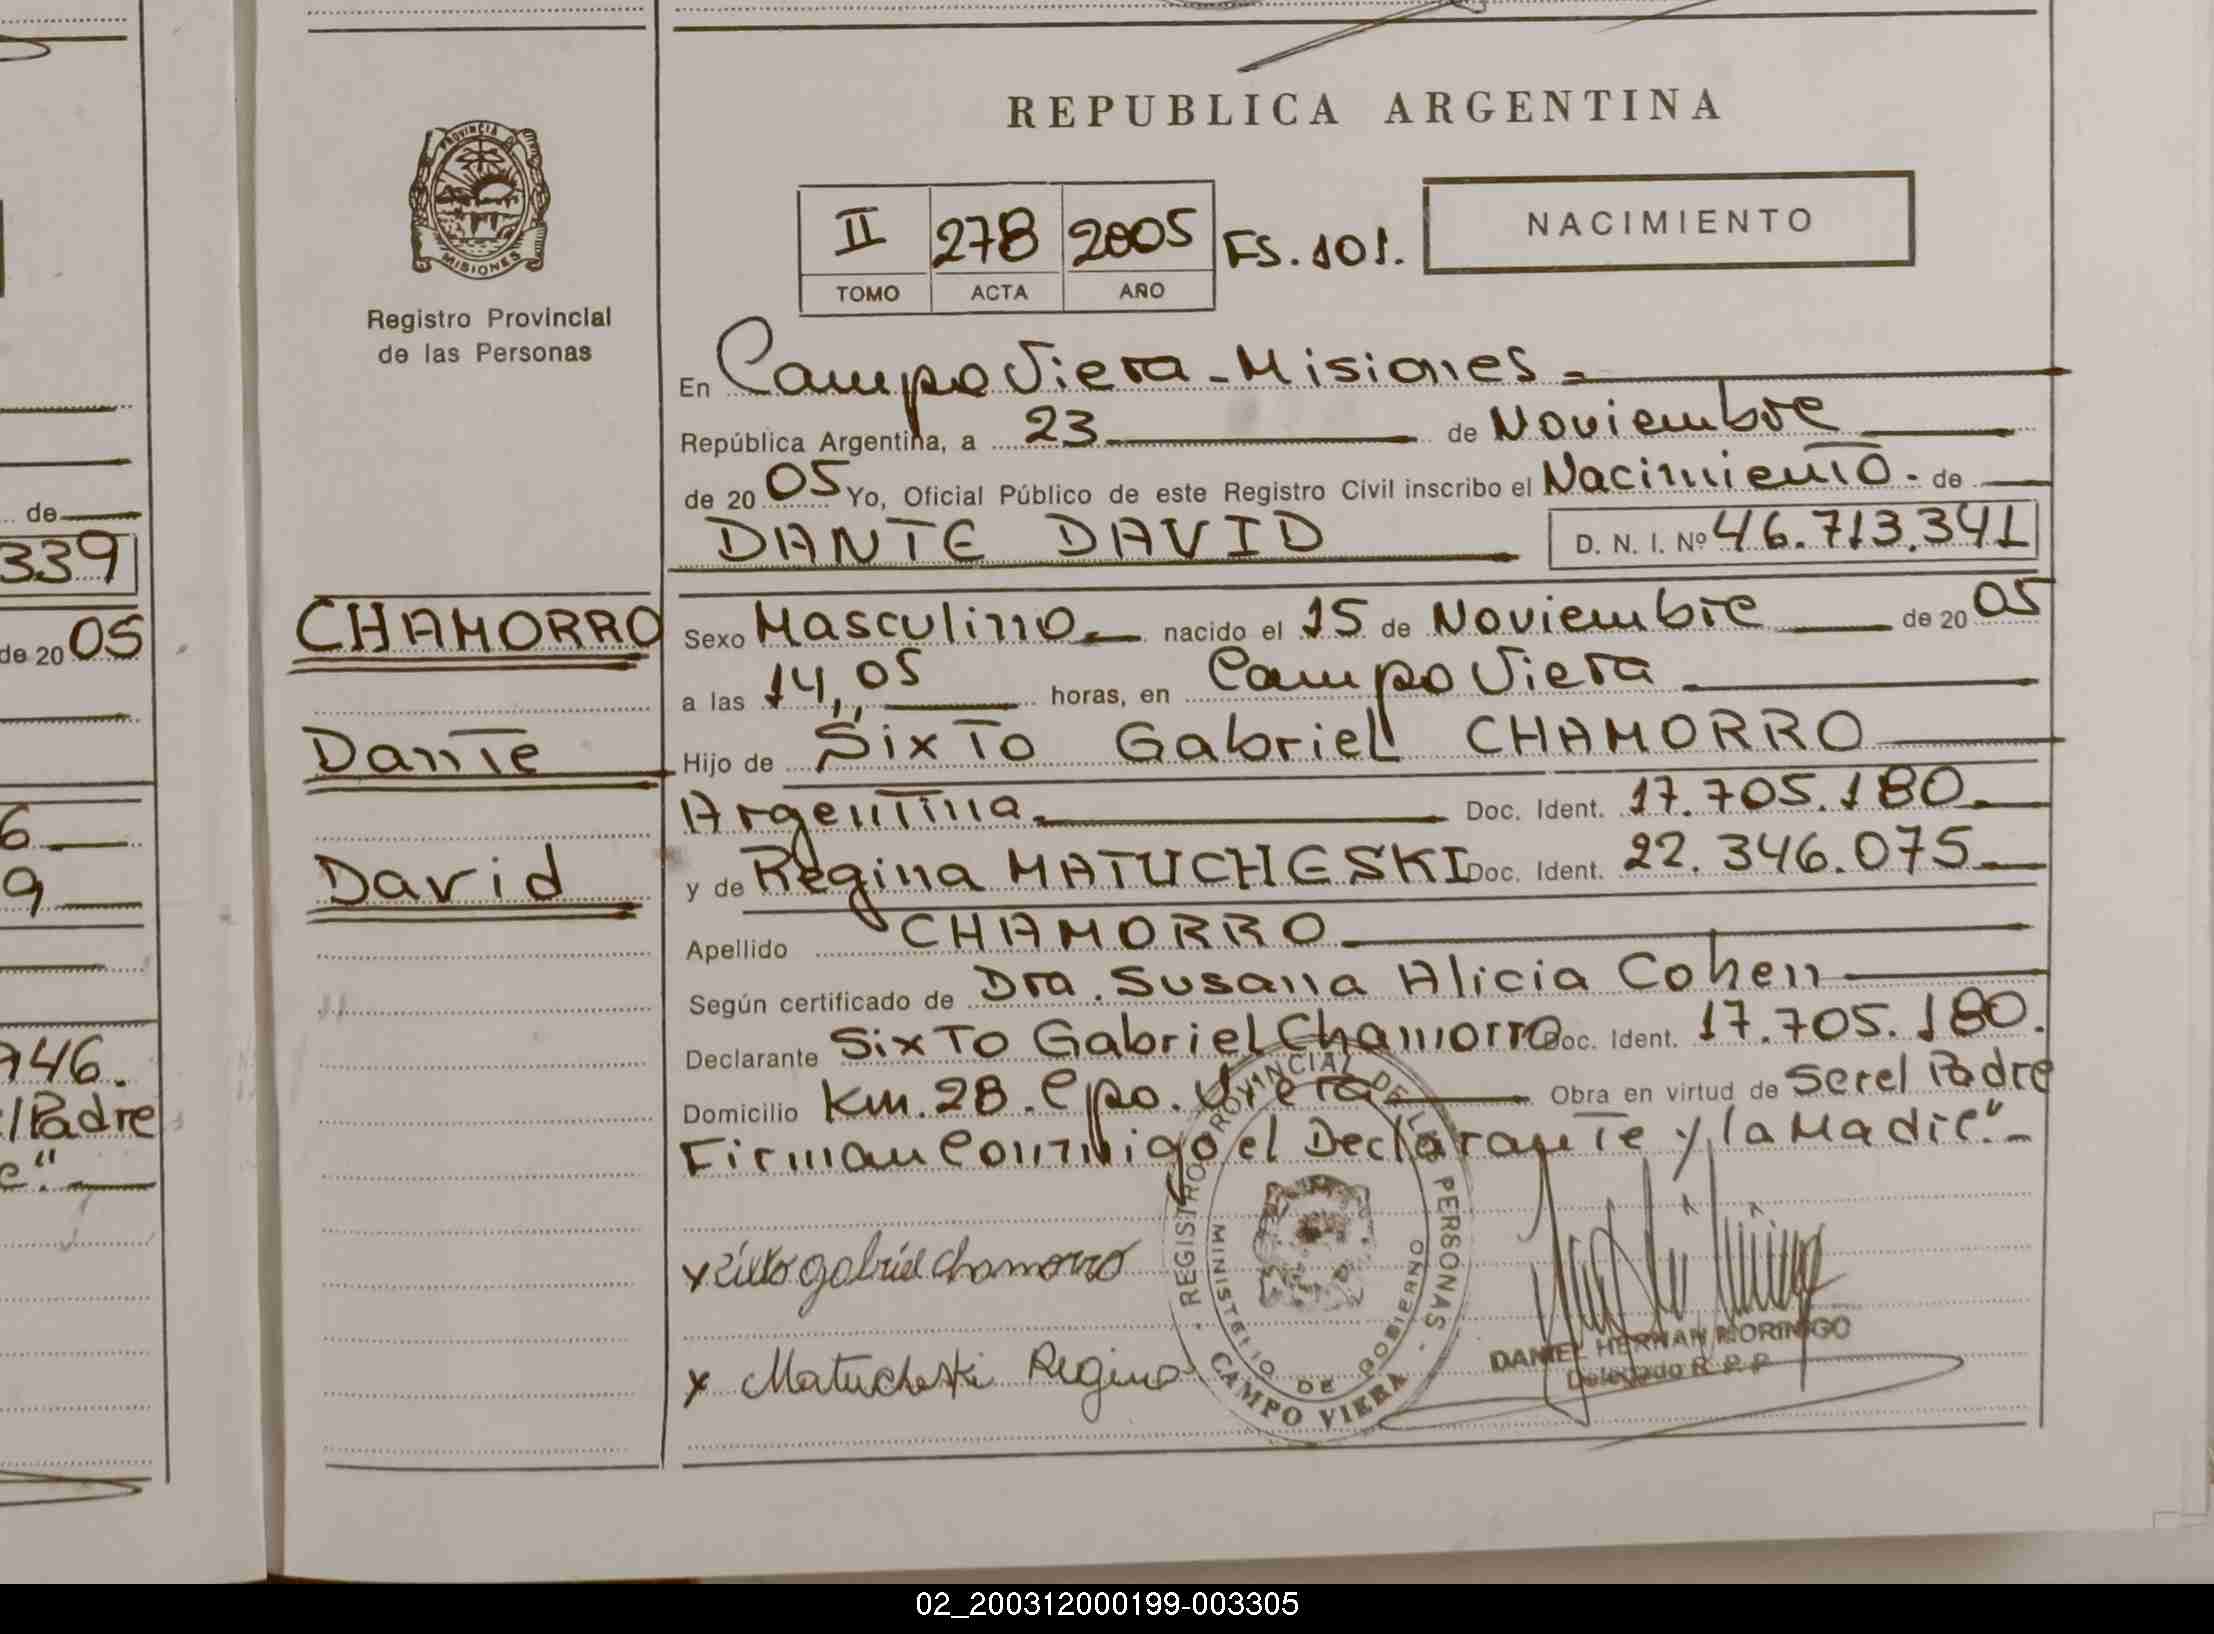 de
339
de 20 05
6
9
946.
el Padre
e".
PROVINCIA DE
MISIONES
Registro Provincial
de las Personas
CHAMORRO
Dante
David
REPUBLICA ARGENTINA
II 278 2005 FS. 101.
TOMO ACTA AÑO
NACIMIENTO
En Campo Viera - Misiones =
República Argentina, a 23 de Noviembre
de 20 05 Yo, Oficial Público de este Registro Civil inscribo el Nacimiento. de
DANTE DAVID D. N. I. Nº 46.713.341
Sexo Masculino nacido el 15 de Noviembre de 20 05
a las 14,05 horas, en Campo Viera
Hijo de Sixto Gabriel CHAMORRO
Argentina Doc. Ident. 17.705.180
y de Regina MATUCHESKI Doc. Ident. 22.346.075
Apellido CHAMORRO
Según certificado de Dra. Susana Alicia Cohen
Declarante Sixto Gabriel Chamorro Doc. Ident. 17.705.180.
Domicilio Km. 28. Cpo. Viera Obra en virtud de ser el Padre
Firman Conmigo el Declarante y la Madre".-
x Sixto gabriel chamorro
x Matucheski Regina
REGISTRO PROVINCIAL DE LAS PERSONAS
MINISTERIO DE GOBIERNO
CAMPO VIERA
DANIEL HERNAN MORINIGO
Delegado R.P.P
02_200312000199-003305